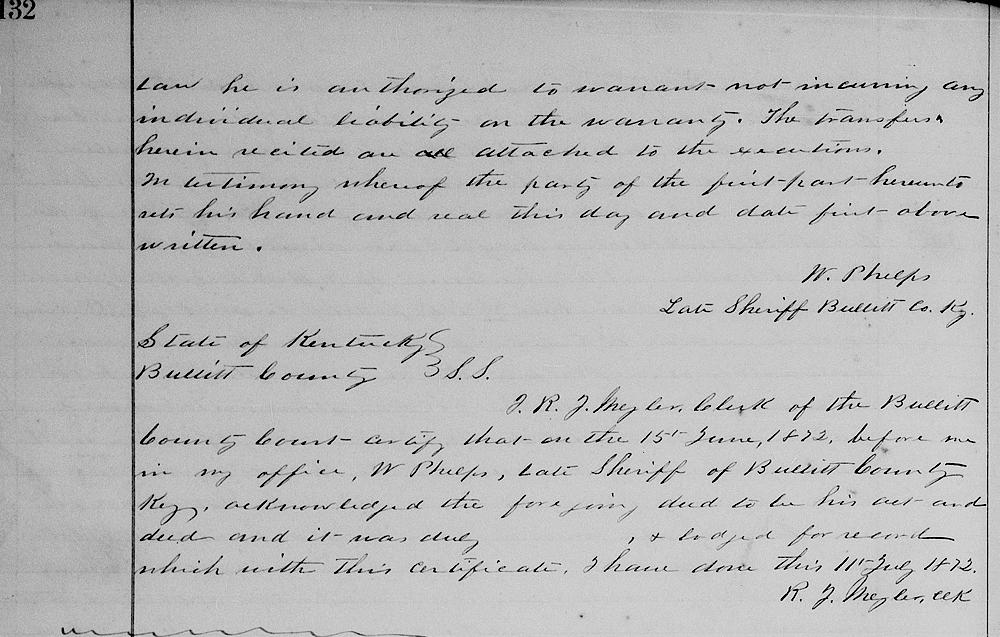 132
Law he is authorized to warrant not incurring any
individual liability on the warranty. The transfers
herein recited are all attached to the executions.
In testimony whereof the party of the first part hereunto
sets his hand and seal this day and date first above
written.
W. Phelps
Late Sheriff Bullitt Co. Ky.
State of Kentucky }
Bullitt County } S.S.
I. R. J. Meyler, Clerk of the Bullitt
County Court certify that on the 15th June, 1872, before me
in my office, W Phelps, Late Sheriff of Bullitt County
Ky, acknowledged the foregoing deed to be his act and
deed and it was duly , & lodged for record
which with this certificate, I have done this 11th July 1872.
R. J. Meyler, Clk